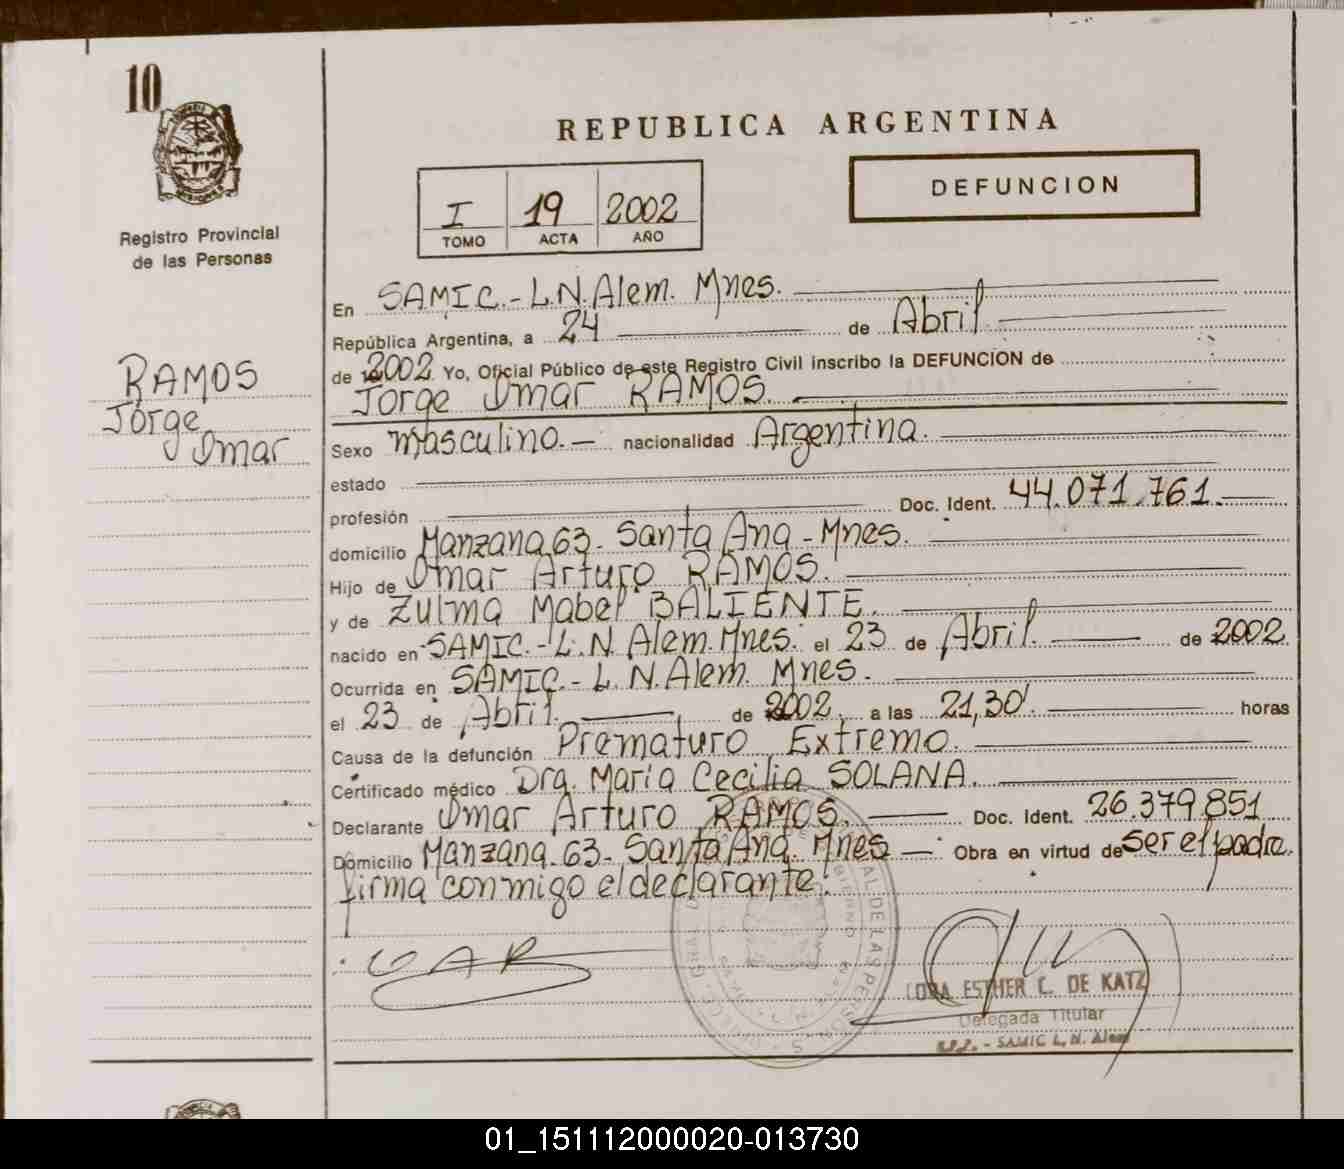 10
Registro Provincial
de las Personas
RAMOS
Jorge
Omar
REPUBLICA ARGENTINA
I 19 2002
TOMO ACTA AÑO
DEFUNCION
En SAMIC.- L.N.Alem. Mnes.
República Argentina, a 24 de Abril
de 2002 Yo, Oficial Público de este Registro Civil inscribo la DEFUNCION de
Jorge Omar RAMOS.
Sexo masculino.- nacionalidad Argentina.
estado
profesión Doc. Ident. 44.071.761.
domicilio Manzana 63- Santa Ana - Mnes.
Hijo de Omar Arturo RAMOS.
y de Zulma Mabel BALIENTE.
nacido en SAMIC.- L.N. Alem. Mnes. el 23 de Abril. de 2002.
Ocurrida en SAMIC.- L.N.Alem. Mnes.
el 23 de Abril. de 2002 a las 21,30' horas
Causa de la defunción Prematuro Extremo.
Certificado médico Dra. María Cecilia SOLANA.
Declarante Omar Arturo RAMOS. Doc. Ident. 26.379.851
Domicilio Manzana 63- Santa Ana. Mnes Obra en virtud de ser el padre.
firma conmigo el declarante.
ESTHER C. DE KATZ
Delegada Titular
SAMIC L. N. Alem
01_151112000020-013730